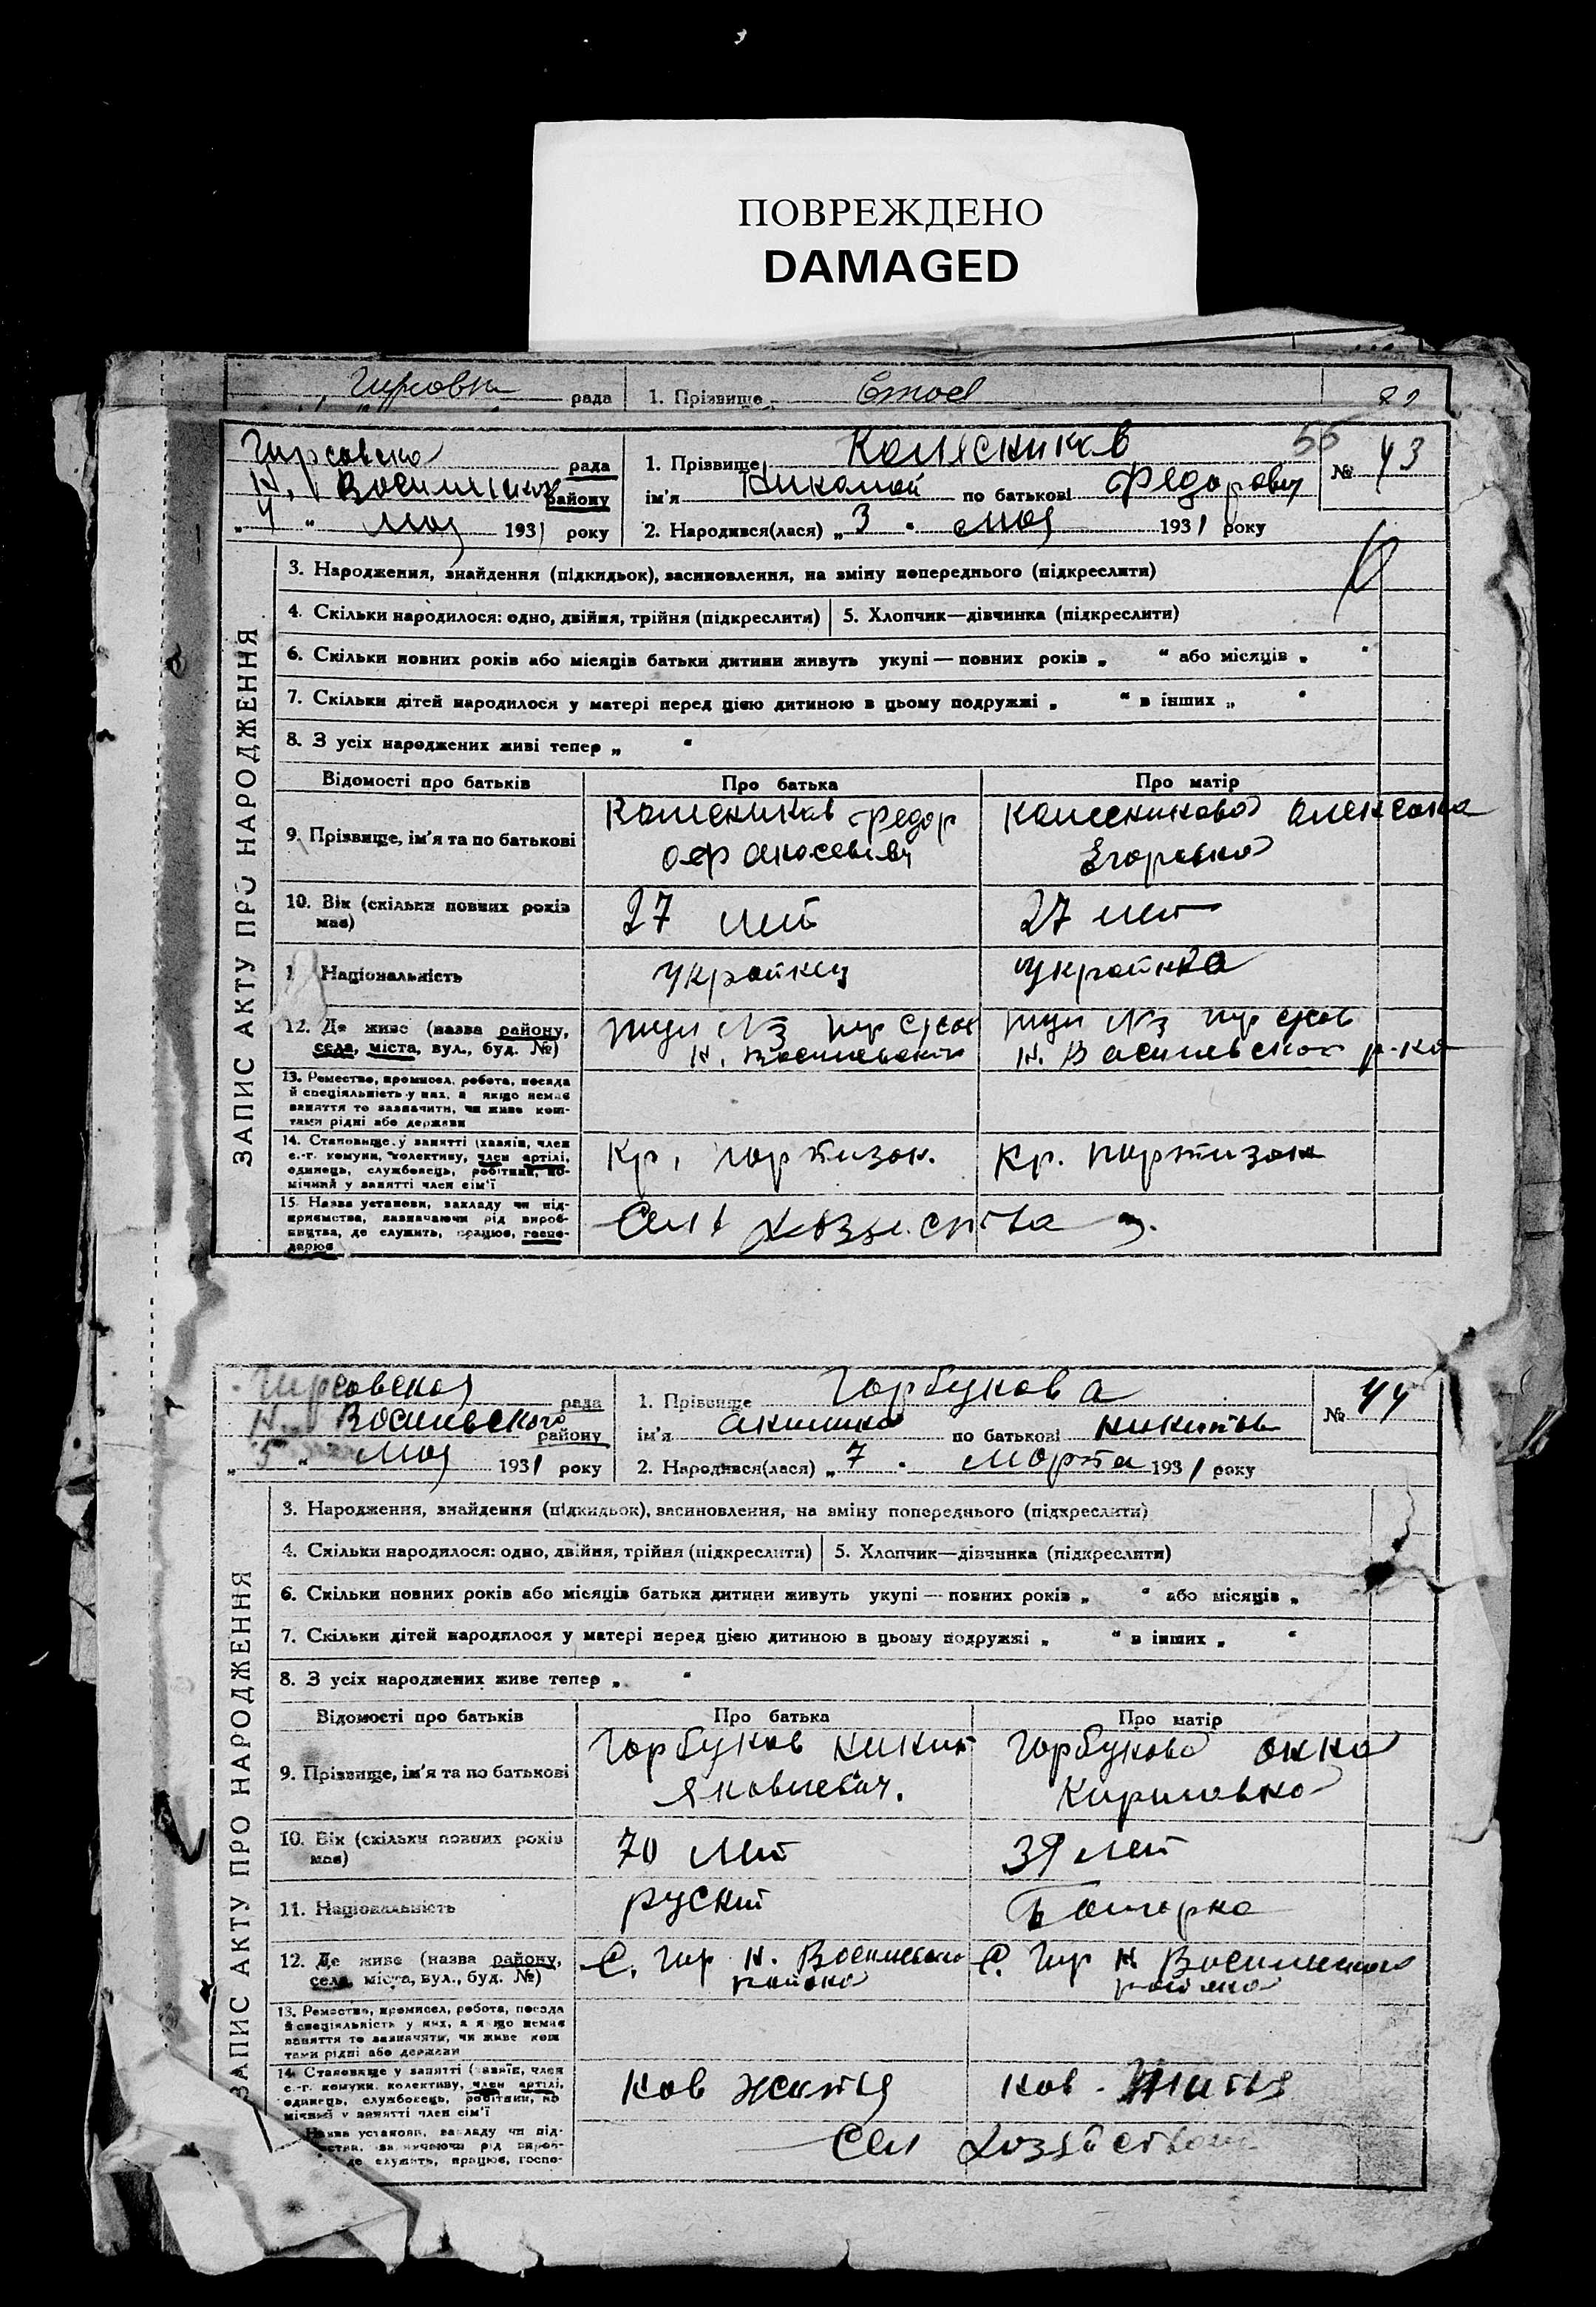 ПОВРЕЖДЕНО
DAMAGED
рада 1. Прізвище
Гирсовско рада 1. Прізвище Колесников 55 № 43
Н. район у ім'я Николай по батькові Федорович
„4“ мая 1931 року 2. Народився(лася) „3“ мая 1931 року
ЗАПИС АКТУ ПРО НАРОДЖЕННЯ
3. Народження, знайдення (підкидьок), васиновлення, на зміну попереднього (підкреслити)
4. Скільки народилося: одно, двійня, трійня (підкреслити) 5. Хлопчик—дівчинка (підкреслити)
6. Скільки повних років або місяців батьки дитини живуть укупі — повних років „ “ або місяців „ “
7. Скільки дітей народилося у матері перед цією дитиною в цьому подружжі „ “ в інших „ “
8. З усіх народжених живі тепер „ “
Відомості про батьків Про батька Про матір
9. Прізвище, ім'я та по батькові Колесников Федор Колесникова
Афанасьевич Егоровна
10. Вік (скільки повних років 27 лет 27 лет
має)
11. Національність украинец украинка
12. Де живе (назва району, №3 №3
села, міста, вул., буд. №) Н. Васильевского Н. Васильевского р-на
13. Ремество, промисел, робота, посада
й спеціяльність у них, а якщо немає
заняття то зазначити, чи живе кош-
тами рідні або держави
14. Становище у занятті (хазяїн, член Кр. партизан. Кр. партизан
с.-г. комуни, колективу, член артілі,
одинець, службовець, робітник, по-
мічний у занятті член сім'ї
15. Назва установи, закладу чи під- Сель хозяйства
приємства, зазначаючи рід вироб-
ництва, де служить, працює, госпо-
дарює
Гирсовская рада 1. Прізвище Горбунова № 44
Н. Васильевского району ім'я Акилина по батькові
„5“ мая 1931 року 2. Народився(лася) „7“ марта 1931 року
ЗАПИС АКТУ ПРО НАРОДЖЕННЯ
3. Народження, знайдення (підкидьок), васиновлення, на зміну попереднього (підкреслити)
4. Скільки народилося: одно, двійня, трійня (підкреслити) 5. Хлопчик—дівчинка (підкреслити)
6. Скільки повних років або місяців батьки дитини живуть укупі — повних років „ “ або місяців „
7. Скільки дітей народилося у матері перед цією дитиною в цьому подружжі „ “ в інших „ “
8. З усіх народжених живе тепер „ “
Відомості про батьків Про батька Про матір
9. Прізвище, ім'я та по батькові Горбунов Никит Горбунова Анна
Яковлевич. Кириловна
10. Вік (скільки повних років 70 лет 39 лет
має)
11. Національність руский Болгарка
12. Де живе (назва району, С. Гир Н. Васильевского С. Гир Н. Васильевского
села, міста, вул., буд. №) района района
13. Ремество, промисел, робота, посада
й спеціяльність у них, а якщо немає
заняття то зазначити, чи живе кош
тами рідні або держави
14. Становище у занятті (хазяїн, член Нов житья Нов. житья
с.-г. комуни, колективу, член артілі,
одинець, службовець, робітник, по
мічний у занятті член сім'ї
Назва установи, закладу чи під- Сел хозяйством
зазначаючи рід вироб-
де служить, працює, госпо-